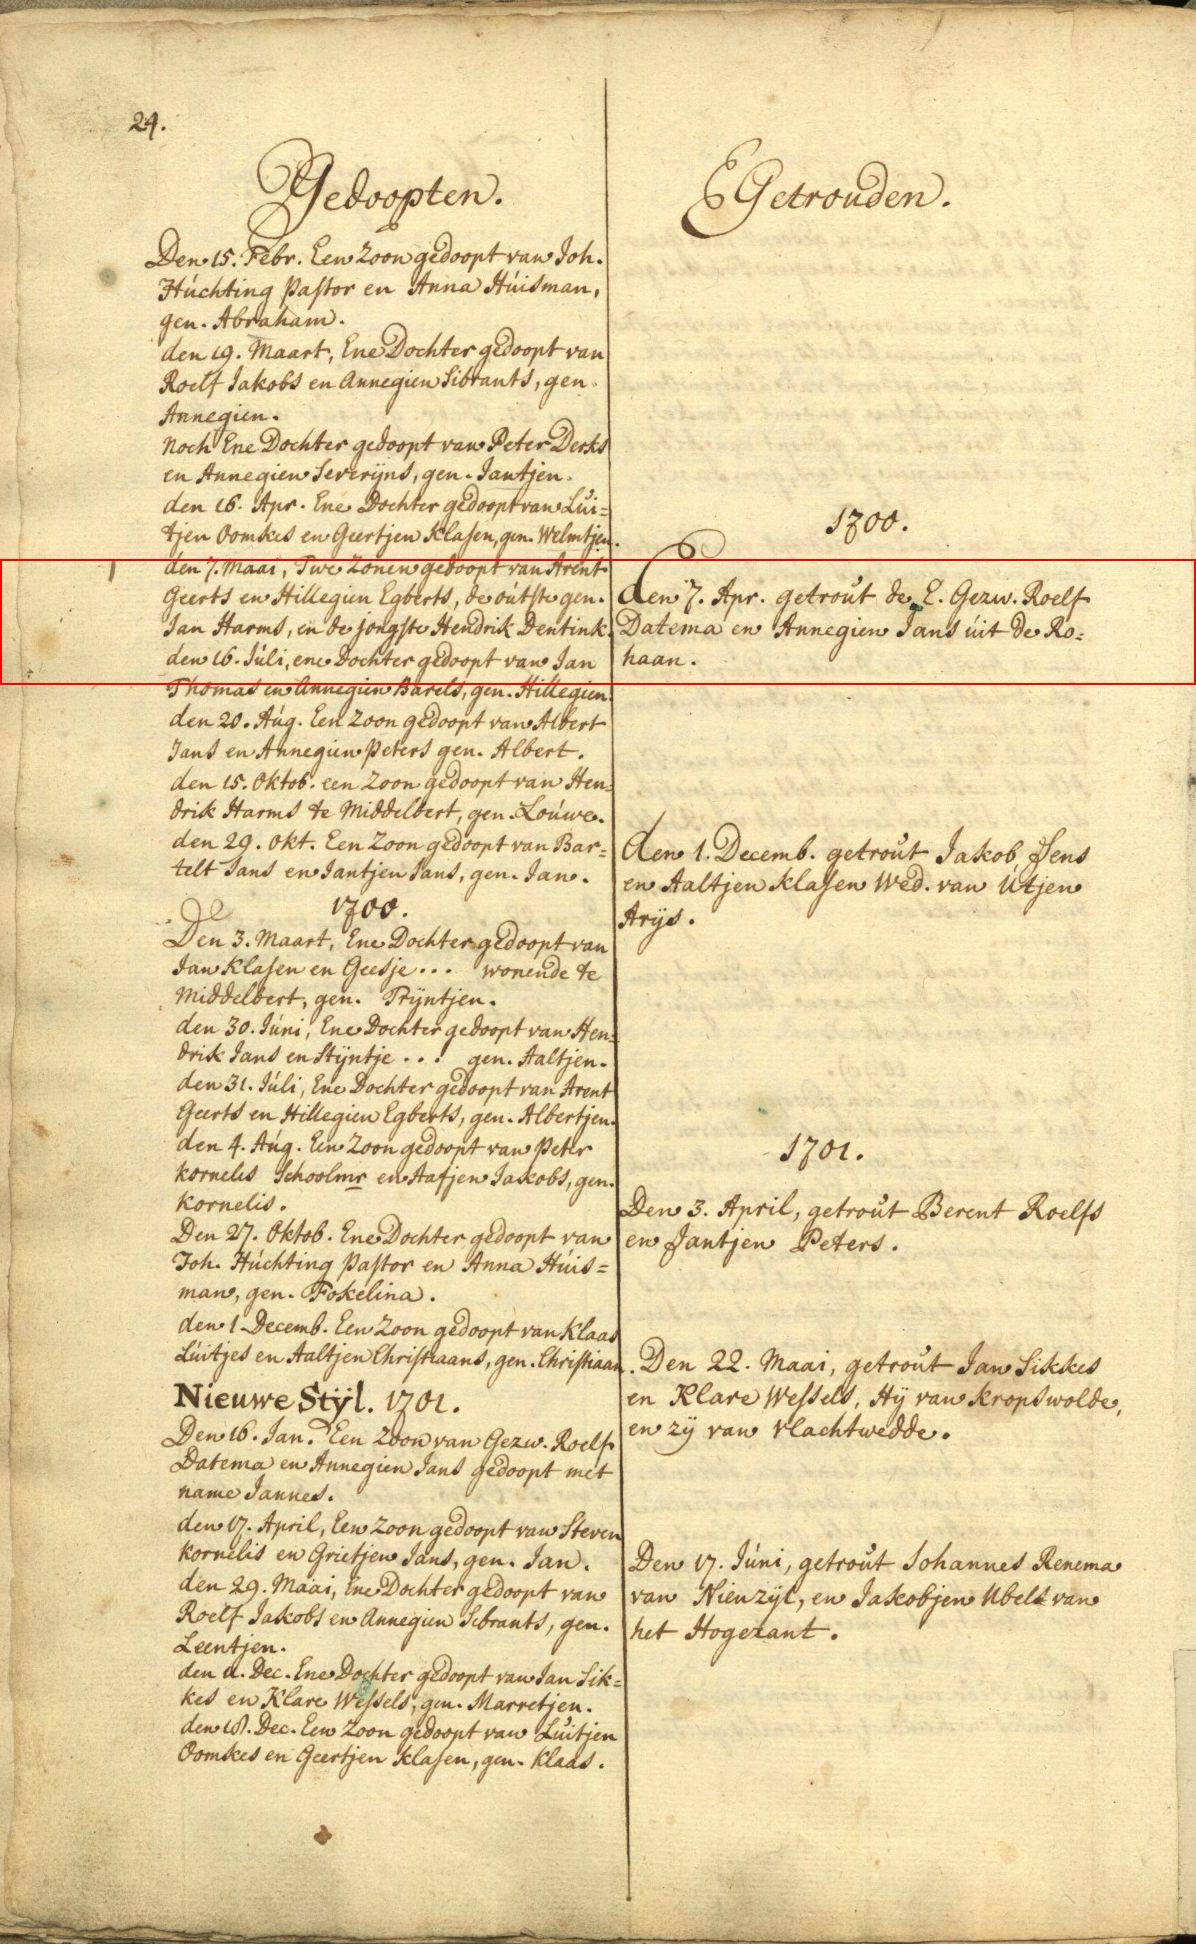 24.
Gedoopten.
Den 15. Febr. Een Zoon gedoopt van Joh.
Húchting Pastor en Anna Húisman,
gen. Abraham.
den 19. Maart, Ene Dochter gedoopt van
Roelf Jakobs en Annegien Sibrants, gen.
Annegien.
Noch Ene Dochter gedoopt van Peter Derks
en Annegien Severijns, gen. Jantjen.
den 16. Apr. Ene Dochter gedoopt van Lui=
tjen Oomkes en Geertjen Klasen, gen. Welmtjen.
den 7. Maai, Twe Zonen gedoopt van Arent
Geerts en Hillegien Egberts, de oútste gen.
Jan Harms, en de jongste Hendrik Dentink.
den 16. Júli, ene Dochter gedoopt van Jan
Thomas en Annegien Barels, gen. Hillegien.
den 20. Aúg. Een Zoon gedoopt van Albert
Jans en Annegien Peters gen. Albert.
den 15. Oktob. een Zoon gedoopt van Hen=
drik Harms te Middelbert, gen. Loúwe.
den 29. Okt. Een Zoon gedoopt van Bar=
telt Jans en Jantjen Jans, gen. Jan.
1700.
Den 3. Maart, Ene Dochter gedoopt van
Jan Klasen en Geesje ... wonende te
Middelbert, gen. Trijntjen.
den 30. Júni, Ene Dochter gedoopt van Hen=
drik Jans en Stijntje ... gen. Aaltjen.
den 31. Júli, Ene Dochter gedoopt van Arent
Geerts en Hillegien Egberts, gen. Albertjen.
den 4. Aúg. Een Zoon gedoopt van Peter
Kornelis Schoolmr en Aafjen Jakobs, gen.
Kornelis.
Den 27. Oktob. Ene Dochter gedoopt van
Joh. Húchting Pastor en Anna Húis=
man, gen. Fokelina.
den 1 Decemb. Een Zoon gedoopt van Klaas
Lúitjes en Aaltjen Christiaans, gen. Christiaan.
Nieuwe Stÿl. 1701.
Den 16. Jan. Een Zoon van Gezw. Roelf
Datema en Annegien Jans gedoopt met
name Jannes.
den 17. April, Een Zoon gedoopt van Steven
Kornelis en Grietjen Jans, gen. Jan.
den 29. Maai, Ene Dochter gedoopt van
Roelf Jakobs en Annegien Sibrants, gen.
Leentjen.
den 11. Dec. Ene Dochter gedoopt van Jan Sik=
kes en Klare Wessels, gen. Marretjen.
den 18. Dec. Een Zoon gedoopt van Luitjen
Oomkes en Geertjen Klasen, gen. Klaas.
Getrouden.
1700.
den 7. Apr. getrout de E. Gezw. Roelf
Datema en Annegien Jans úit de Ro=
haan.
den 1. Decemb. getrout Jakob Jens
en Aaltjen Klasen Wed. van Útjen
Arijs.
1701.
Den 3. April, getrout Berent Roelfs
en Jantjen Peters.
Den 22. Maai, getrout Jan Sikkes
en Klare Wessels, Hij van Kropswolde,
en zij van Vlachtwedde.
Den 17. Júni, getrout Johannes Renema
van Nienzijl, en Jakobjen Ubels van
het Hogezant.